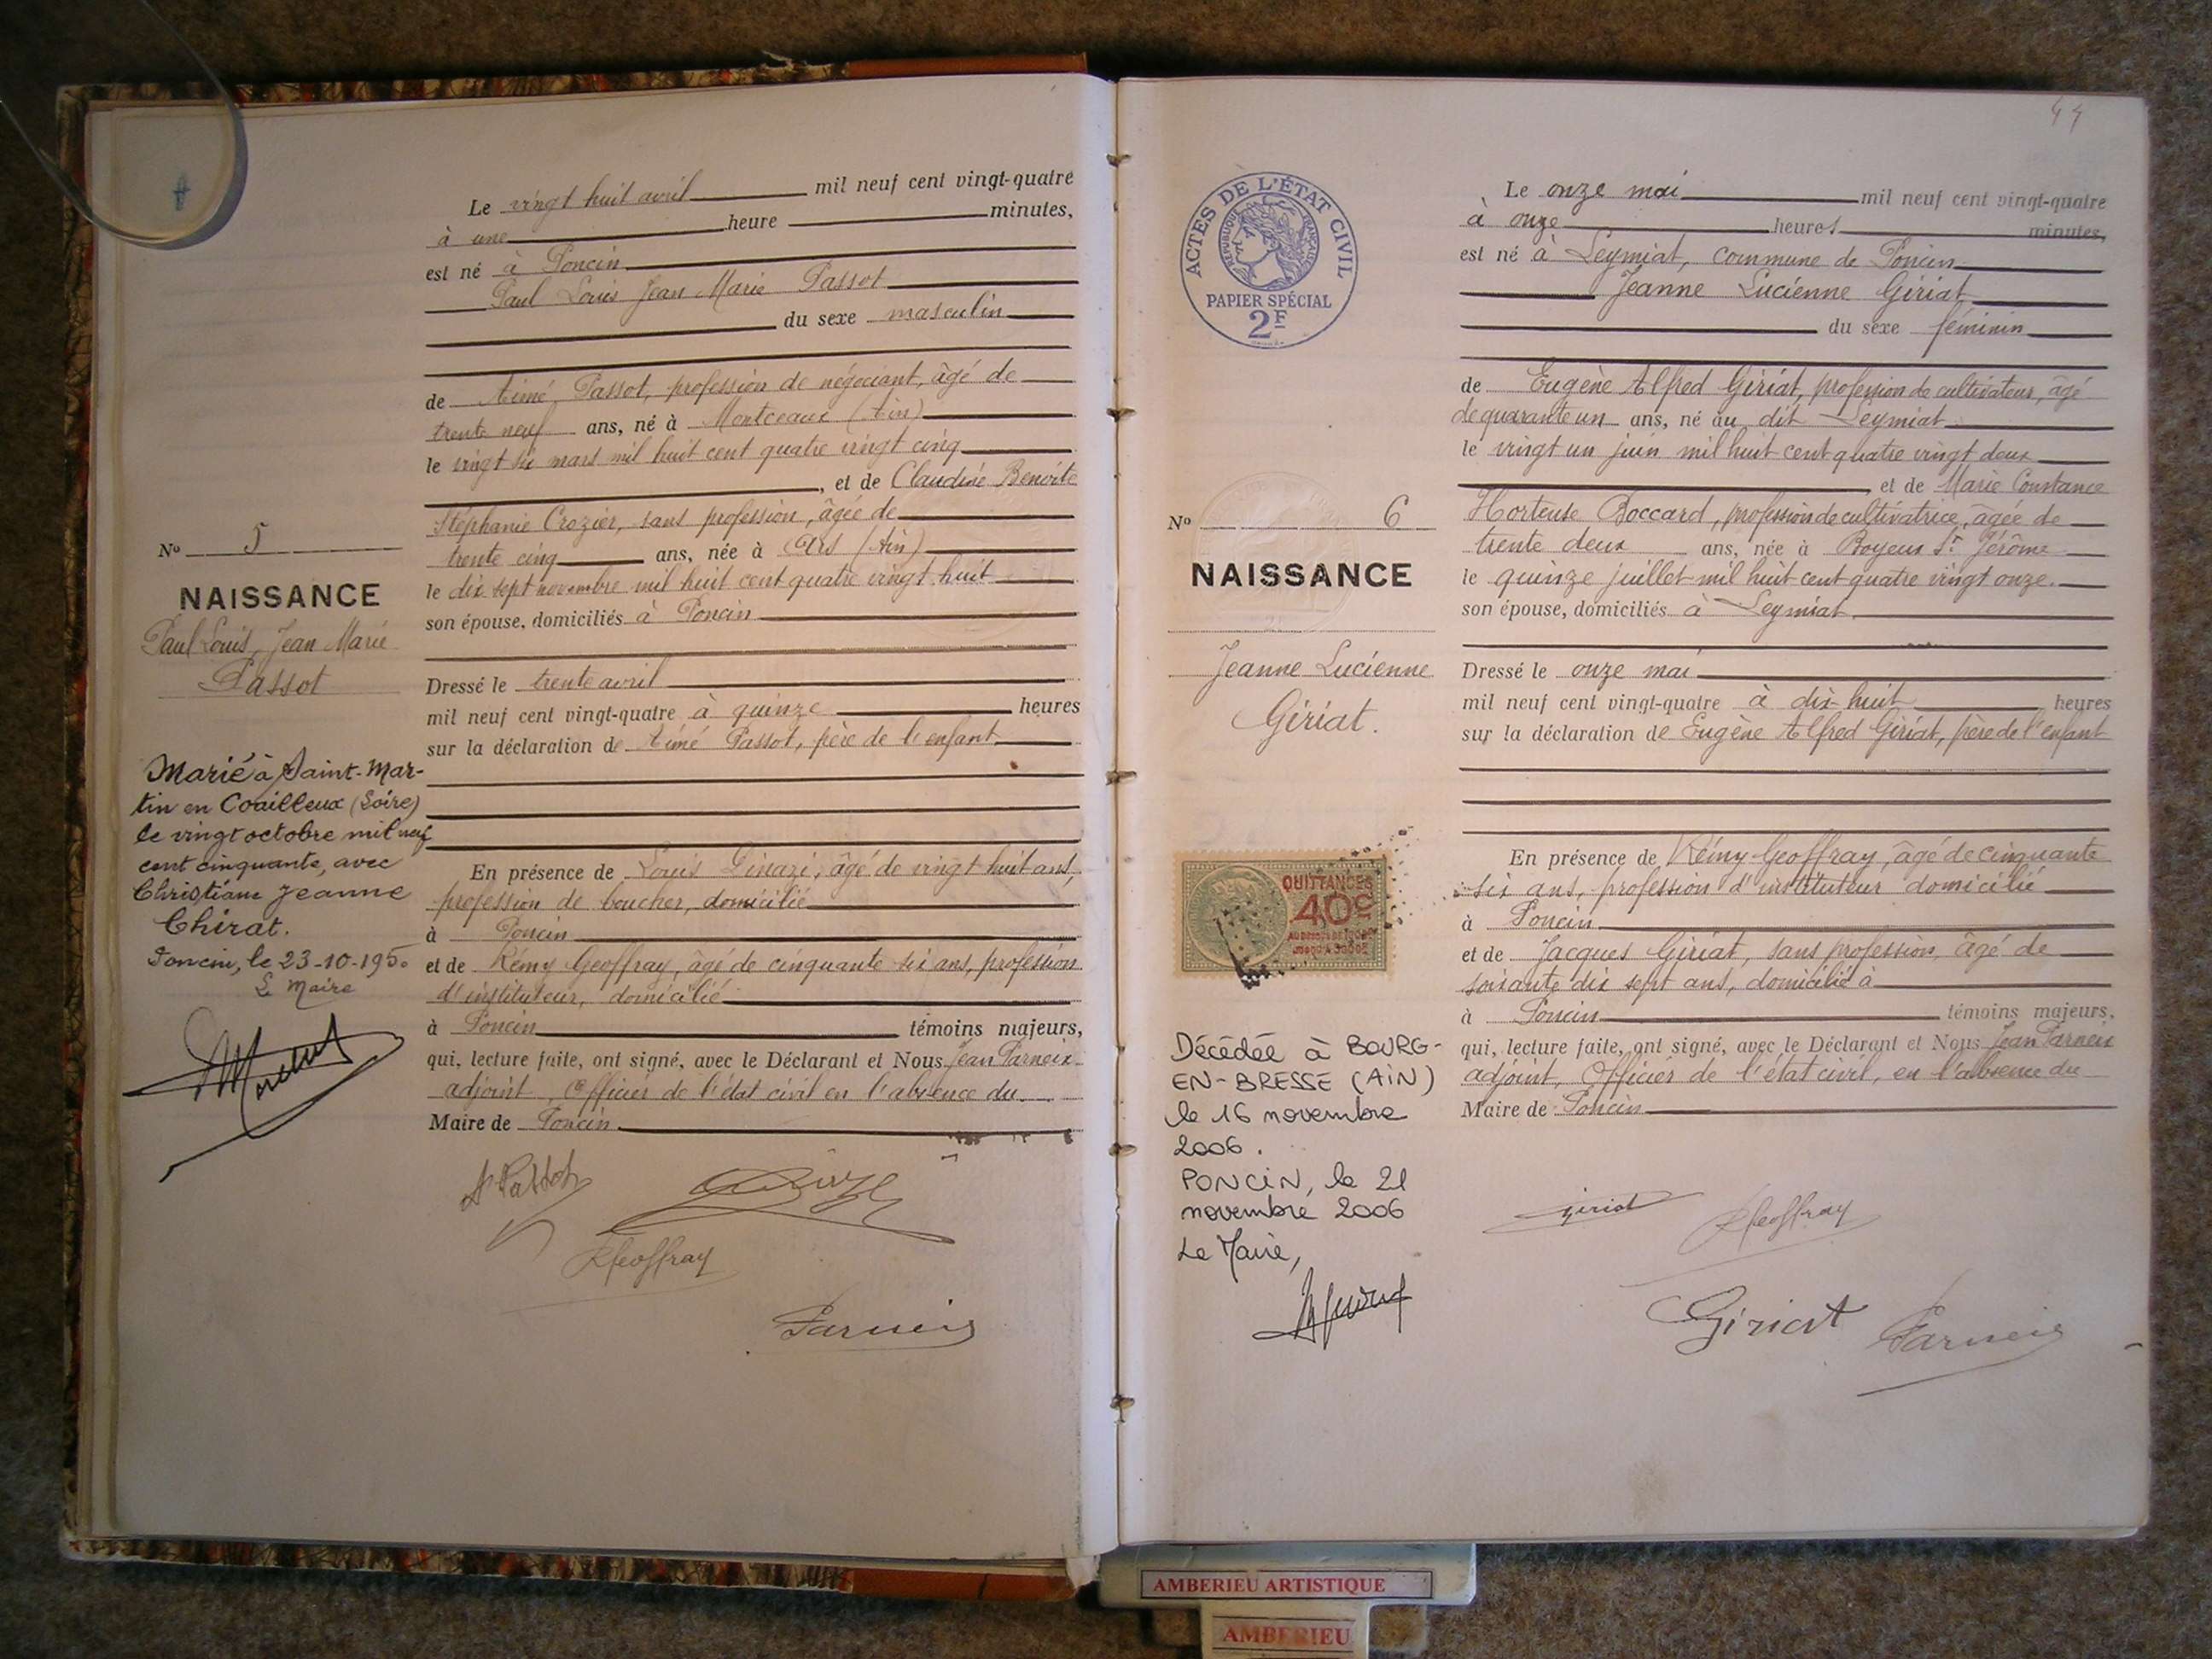 Le vingt huit avril mil neuf cent vingt-quatre
à une heure minutes,
est né à Poncin
Paul Louis Jean Marie Passot
du sexe masculin
de Aimé Passot, profession de négociant, âgé de
trente neuf ans, né à Montceaux (Ain)
le vingt six mars mil huit cent quatre vingt cinq
, et de Claudine Benoite
Stéphanie Crozier, sans profession, âgée de
trente cinq ans, née à Ars (Ain)
le dix sept novembre mil huit cent quatre vingt huit
son épouse, domiciliés à Poncin
Dressé le trente avril
mil neuf cent vingt-quatre à quinze heures
sur la déclaration de Aimé Passot, père de l'enfant
En présence de Louis, âgé de vingt huit ans,
profession de boucher, domicilié
à Poncin
et de Rémy Geoffray, âgé de cinquante six ans, profession
d'instituteur, domicilié
à Poncin témoins majeurs,
qui, lecture faite, ont signé, avec le Déclarant et Nous Jean Parneix
adjoint, Officier de l'état civil en l'absence du
Maire de Poncin
A Passot
RGeoffray
Parneix
No 5
NAISSANCE
Paul Louis, Jean Marie
Passot
Marié à Saint-Mar-
tin en Coailleux (Loire)
le vingt octobre mil neuf
cent cinquante, avec
Christiane Jeanne
Chirat.
Poncin, le 23-10-1950
Le Maire
44
ACTES DE L'ÉTAT CIVIL
RÉPUBLIQUE FRANÇAISE
PAPIER SPÉCIAL
2F
No 6
NAISSANCE
Jeanne Lucienne
Giriat.
QUITTANCES
40c
Décédée à BOURG-
EN-BRESSE (AIN)
le 16 novembre
2006.
PONCIN, le 21
novembre 2006
Le Maire,
Le onze mai mil neuf cent vingt-quatre
à onze heures minutes,
est né à Leymiat, commune de Poncin
Jeanne Lucienne Giriat
du sexe féminin
de Eugène Alfred Giriat, profession de cultivateur, âgé
de quarante un ans, né au dit Leymiat
le vingt un juin mil huit cent quatre vingt deux
, et de Marie Constance
Hortense Boccard, profession de cultivatrice, âgée de
trente deux ans, née à Boyeux St Jérôme
le quinze juillet mil huit cent quatre vingt onze.
son épouse, domiciliés à Leymiat
Dressé le onze mai
mil neuf cent vingt-quatre à dix huit heures
sur la déclaration de Eugène Alfred Giriat, père de l'enfant
En présence de Rémy Geoffray, âgé de cinquante
six ans, profession d'instituteur domicilié
à Poncin
et de Jacques Giriat, sans profession, âgé de
soixante dix sept ans, domicilié à
à Poncin témoins majeurs,
qui, lecture faite, ont signé, avec le Déclarant et Nous Jean Parneix
adjoint, Officier de l'état civil, en l'absence du
Maire de Poncin
Giriat
RGeoffray
Giriat
Parneix
AMBERIEU ARTISTIQUE
AMBERIEU